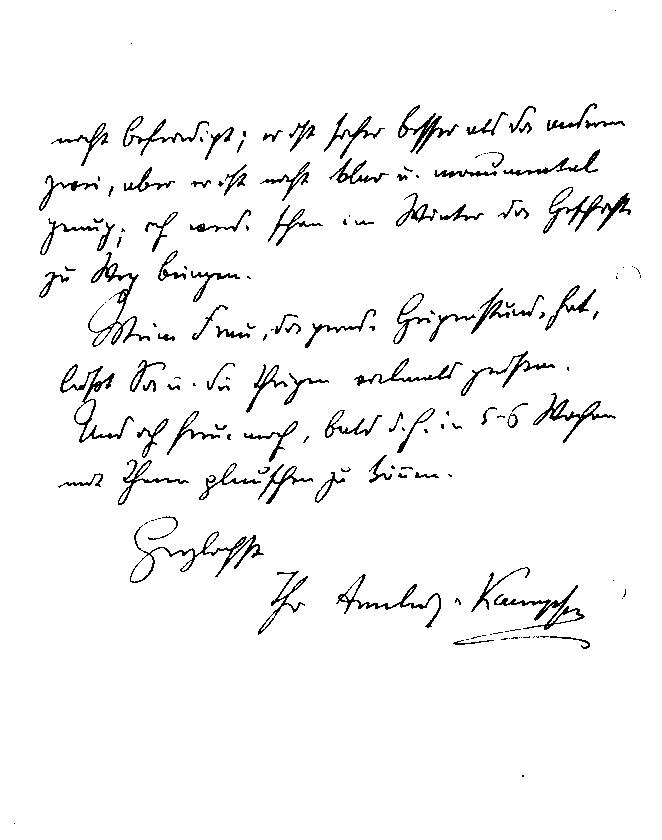 nicht befriedigt; er ist sicher besser als die anderen
zwei, aber er ist nicht klar u. monumental
genug; ich werde schon im Winter die Geschichte
zu Weg bringen.
Meine Frau, die gerade Geigenstunde hat,
lässt Sie u. die Ihrigen vielmals grüssen.
Und ich freue mich, bald d. h. in 5-6 Wochen
mit Ihnen plauschen zu können.
Herzlichst
Ihr